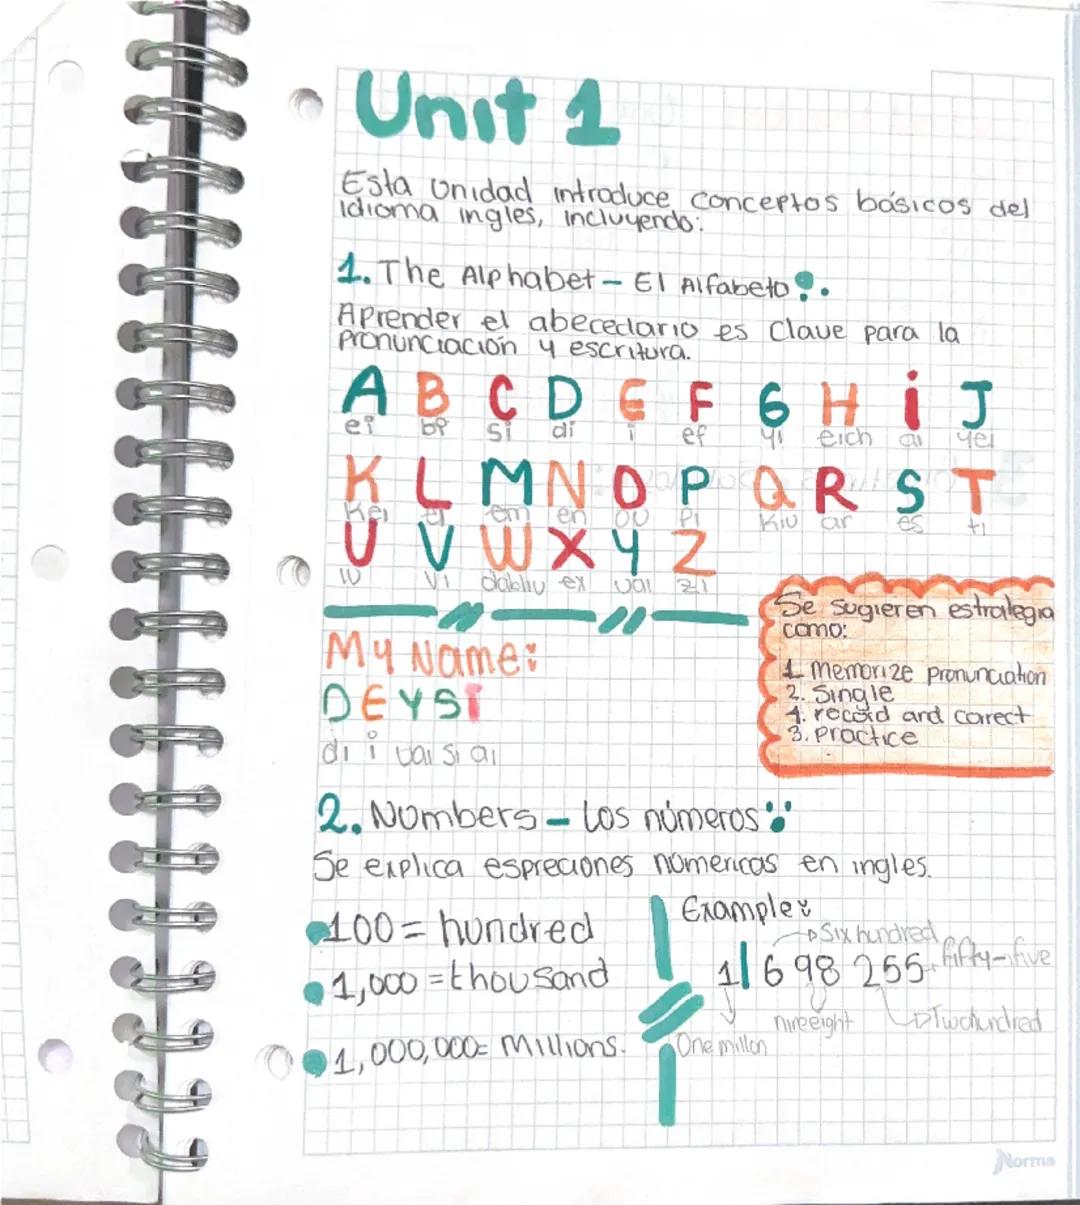 Unit 1
Esta unidad introduce conceptos básicos del
idioma ingles, incluyendo:
1. The Alphabet - El Alfabeto
Aprender el abecedario es clave para la
pronunciación y escritura.
A B C D E F G H i J
ei bi si di i ef yi eich ai yei
K L M N O P Q R S T
kei el em en ou pi kiu ar es ti
U V W X Y Z
iu vi dabliu ex uai zi
Se sugieren estrategia
como:
1. Memorize pronunciation
2. Single
4. record and correct
3. practice
My Name:
DEYSi
di i uai si ai
2. Numbers - Los números
Se explica espreciones númericas en ingles.
100 = hundred
1,000 = thousand
1,000,000 = Millions.
Example:
Six hundred
1 698 255 fifty-five
nineeight
Two hundred
One millon
Norma